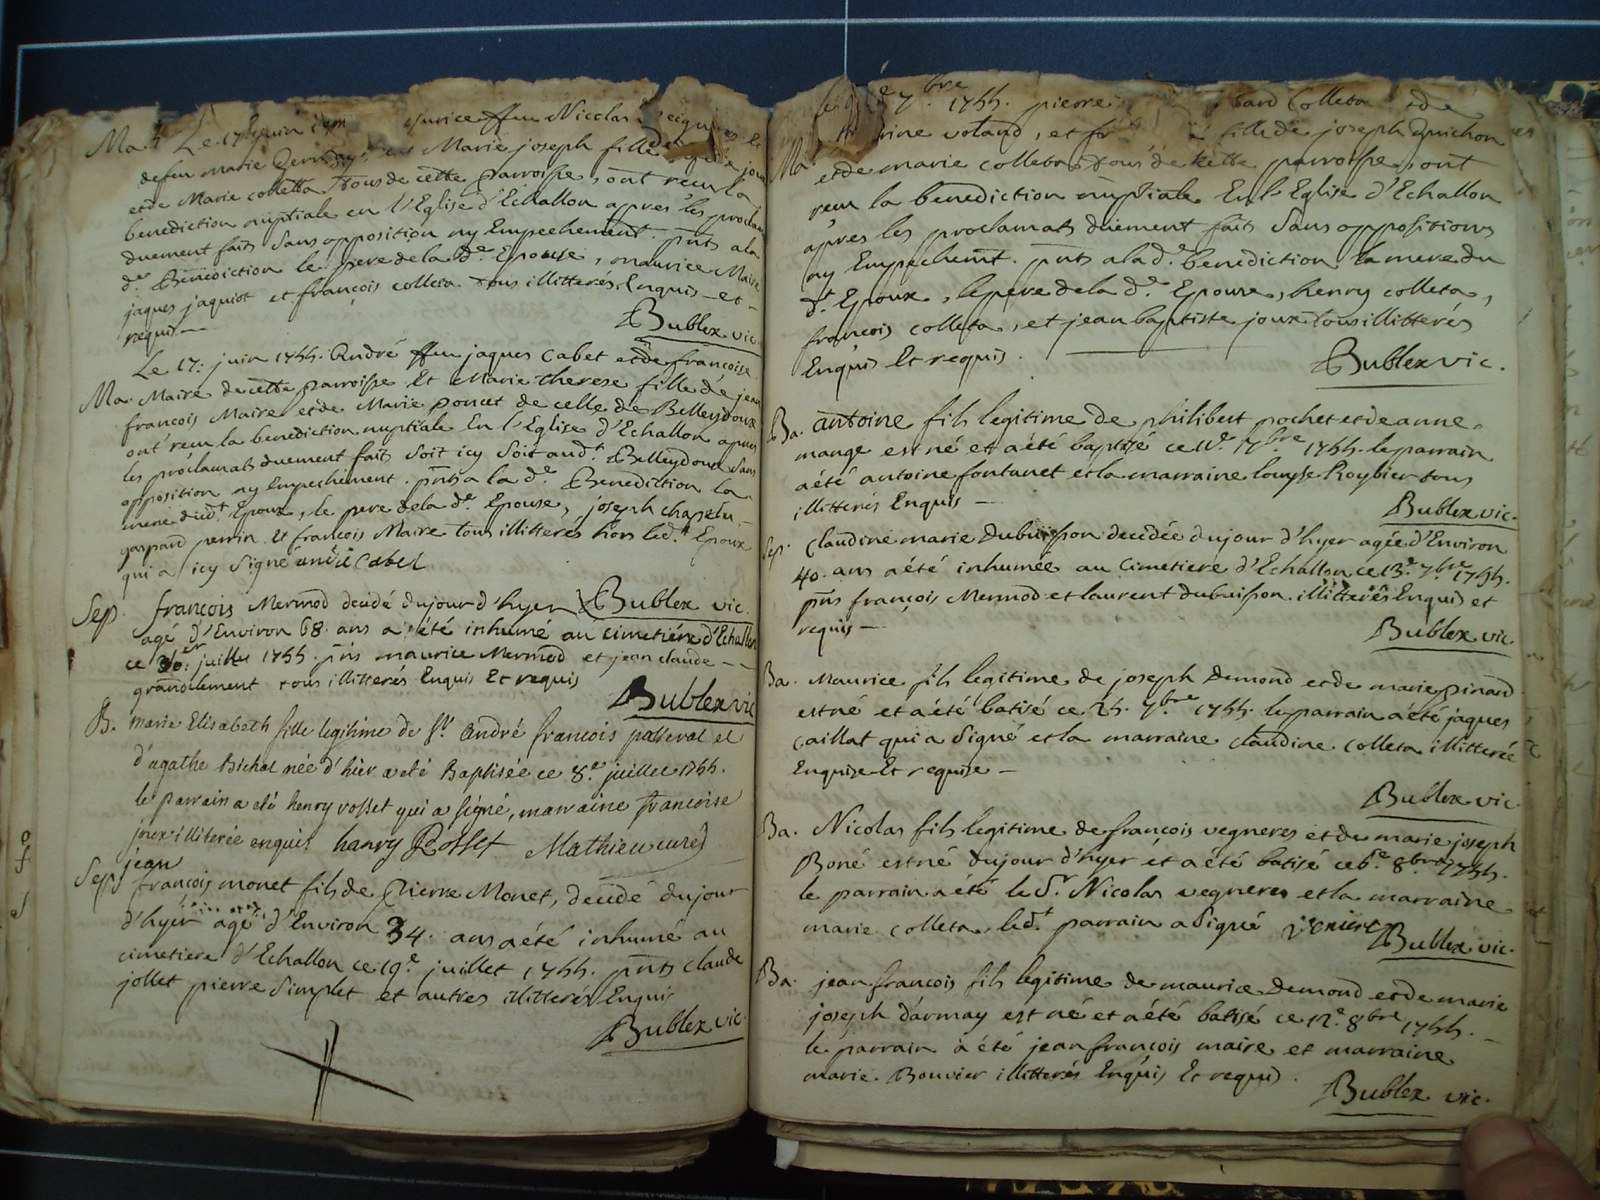 Ma. Le 17 juin Maurice ffeu Nicolas
defeu marie et Marie joseph fille de
et de Marie colletta tous de cette parroisse, ont recu la
benediction nuptiale en l'Eglise d'Echallon apres les proclam
duement faits Sans opposition ny Empechement. pnts a la
de. Benediction le pere de la de. Epouse, maurice Maire
jaques jaquiot et françois colleta. tous illitterés Enquis et
requis —
Bublex vic.
Le 17: juin 1755. André ffeu jaques Cabet et de françoise
Ma. Maire de cette parroisse Et Marie therese fille de jean
françois Maire et de Marie poncet de celle de Belleydoux
ont recu la benediction nuptiale En l'Eglise d'Echallon apres
les proclamats duement faits Soit icy Soit audt. Belleydoux Sans
opposition ny Empechement. pnts a la de. Benediction la
mere dudt. Epoux, le pere de la de. Epouse, joseph chapelu
gaspard perrin Et françois Maire tous illitterés hors ledt. Epoux
qui a icy Signé andré Cabet
Bublex vic.
Sep. françois Mermod decedé du jour d'hyer
agé d'Environ 68. ans a été inhumé au cimetiere d'Echallon
ce juillet 1755. pnts maurice Mermod et jean claude —
grandclement tous illitterés Enquis Et requis
Bublex vic
B. marie Elisabeth fille legitime de Sr. André francois passerat et
d'agathe Bichat née d'hier a eté Baptisée ce 8.e juillet 1755.
le parrain a eté henry rosset qui a signé, marraine francoise
joux illiterée enquis henry Rosset Mathieu curé
jean
Sep. françois monet fils de Pierre Monet, decedé du jour
d'hyer agé d'Environ 34. ans a été inhumé au
cimetiere d'Echallon ce 19.e juillet 1755. pnts claude
jollet pierre Simplet et autres illitterés Enquis
Bublex vic.
7.bre 1755. pierre colleta et de
Ma. voland, et fille de joseph Quichon
et de marie colleta tous de cette parroisse, ont
recu la benediction nuptiale En l'Eglise d'Echallon
apres les proclamats duement faits Sans oppositions
ny Empechemt. pnts a la d.e benediction la mere du
dt. Epoux, le pere de la de. Epouse, henry colleta,
françois colleta, et jean baptiste joux tous illitterés
Enquis Et requis.
Bublex vic.
Ba. antoine fils legitime de philibert pochet et de anne
mange est né et a été baptisé ce 7.bre 1755. le parrain
a été antoine fontanet et la marraine louyse Roybier tous
illitterés Enquis —
Bublex vic.
Sep. Claudine marie Dubuisson decedée du jour d'hyer agée d'Environ
40. ans a été inhumée au Cimetiere d'Echallon ce 13.e 7.bre 1755.
pnts françois Mermod et laurent dubuisson. illitterés Enquis et
requis —
Bublex vic.
Ba. Maurice fils legitime de joseph Demond et de marie pinard
est né et a été batisé ce 25. 7.bre 1755. le parrain a été jaques
Caillat qui a Signé et la marraine claudine colleta illitterée
Enquise Et requise —
Bublex vic.
Ba. Nicolas fils legitime de françois vegneres et de marie joseph
Boné est né du jour d'hyer et a été batisé ce 8.bre 1755.
le parrain a été le Sr. Nicolas vegneres et la marraine
marie colleta, ledt. parrain a Signé
Bublex vic.
Ba. jean françois fils legitime de maurice Demond et de marie
joseph darmay est né et a été batisé ce 12.e 8.bre 1755. —
le parrain a été jean françois maire et marraine
marie Bouvier illitterés Enquis Et requis.
Bublex vic.